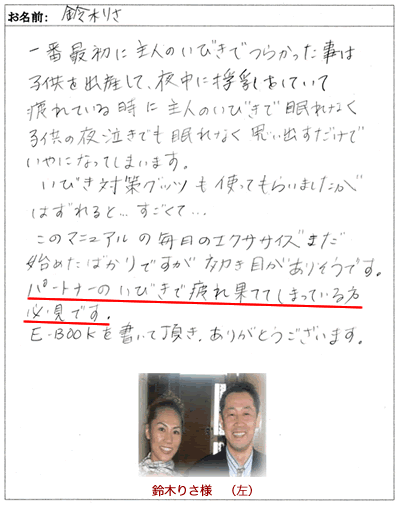 お名前: 鈴木りさ
一番最初に主人のいびきでつらかった事は
子供を出産して、夜中に授乳をしていて
疲れている時に主人のいびきで眠れなく
子供の夜泣きでも眠れなく思い出すだけで
いやになってしまいます。
いびき対策グッツも使ってもらいましたが
はずれると…すごくて…
このマニュアルの毎日のエクササイズまだ
始めたばかりですが効き目がありそうです。
パートナーのいびきで疲れ果ててしまっている方
必見です。
E-BOOKを書いて頂き、ありがとうございます。
鈴木りさ様 (左)